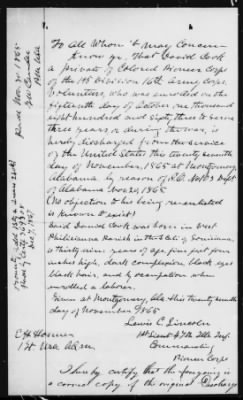 To All Whom it May Concern
Know ye, That David Cook
a private of Colored Pioneer Corps
of the 1st Division 16th Army Corps
Volunteers, who was enrolled on the
fifteenth day of October one thousand
eight hundred and sixty three to serve
three years or during the war, is
hereby discharged from the service
of the United States this twenty seventh
day of November 1865 at Montgomery
Alabama by reason of Dept
of Alabama Nov 20, 1865
(No objection to his being reenlisted
is known to exist)
Said David Cook was born in West
Parish in the State of Louisiana,
is Thirty nine years of age, five feet four
inches high, dark complexion, black eyes
black hair, and by occupation when
enrolled a laborer.
Given at Montgomery, Ala this twenty seventh
day of November 1865
Lewis C. Lincoln
1st Lieut 47th Ills Inf.
Commanding
Pioneer Corps
I hereby certify that the foregoing is
a correct copy of the original Discharge
Paid Nov. 30, 1865